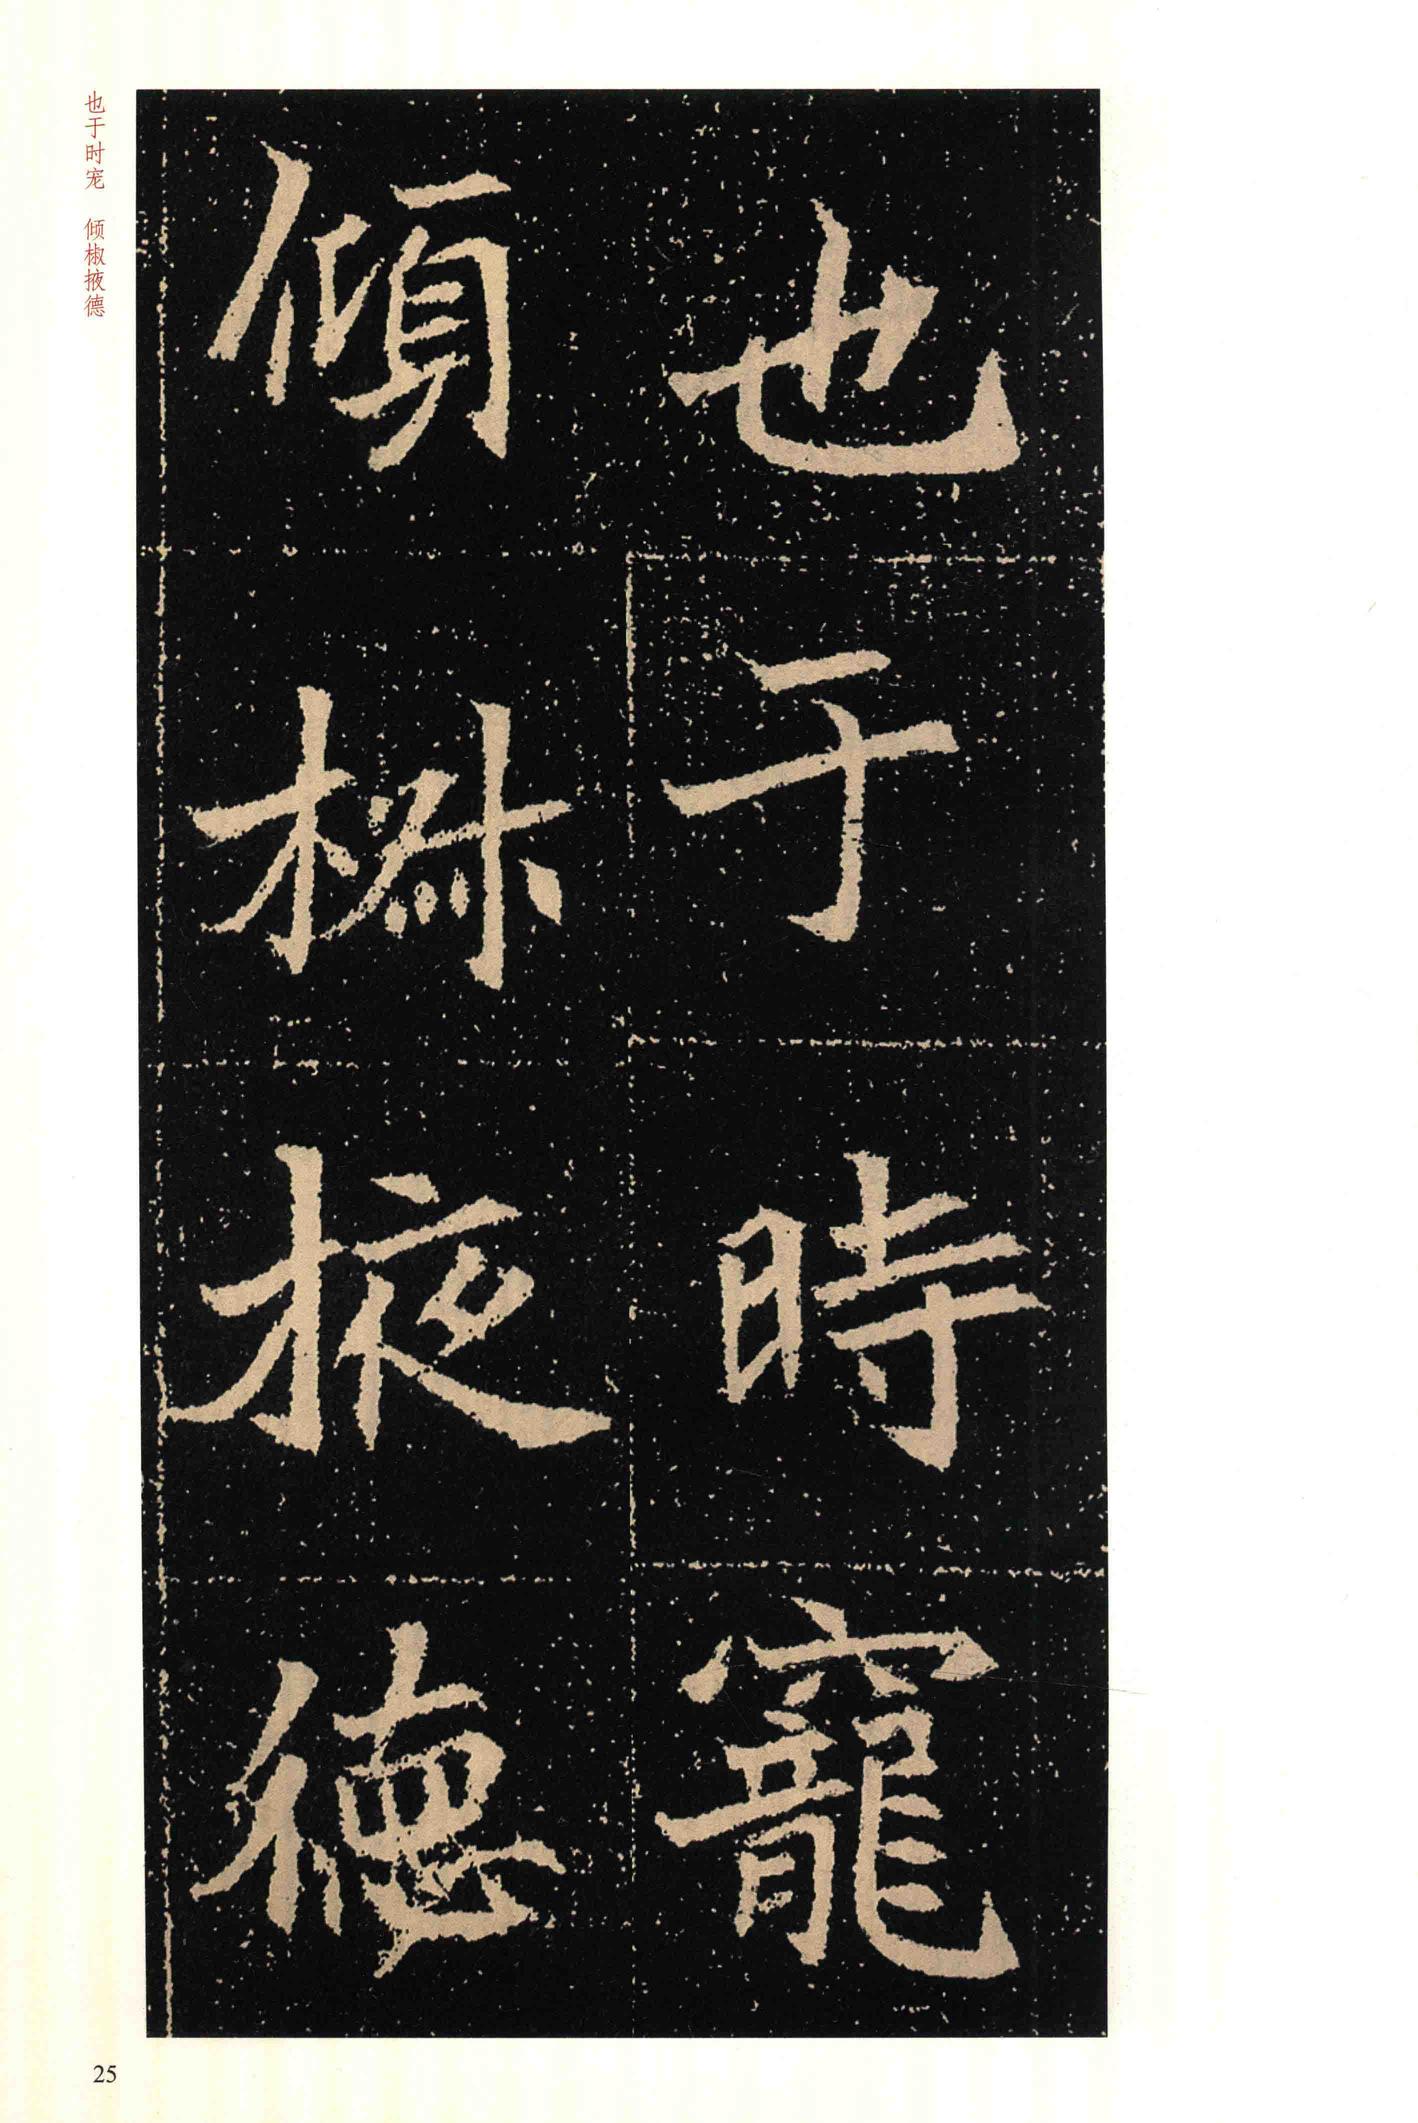 也于時寵
傾椒掖德
也于时宠 倾椒掖德
25